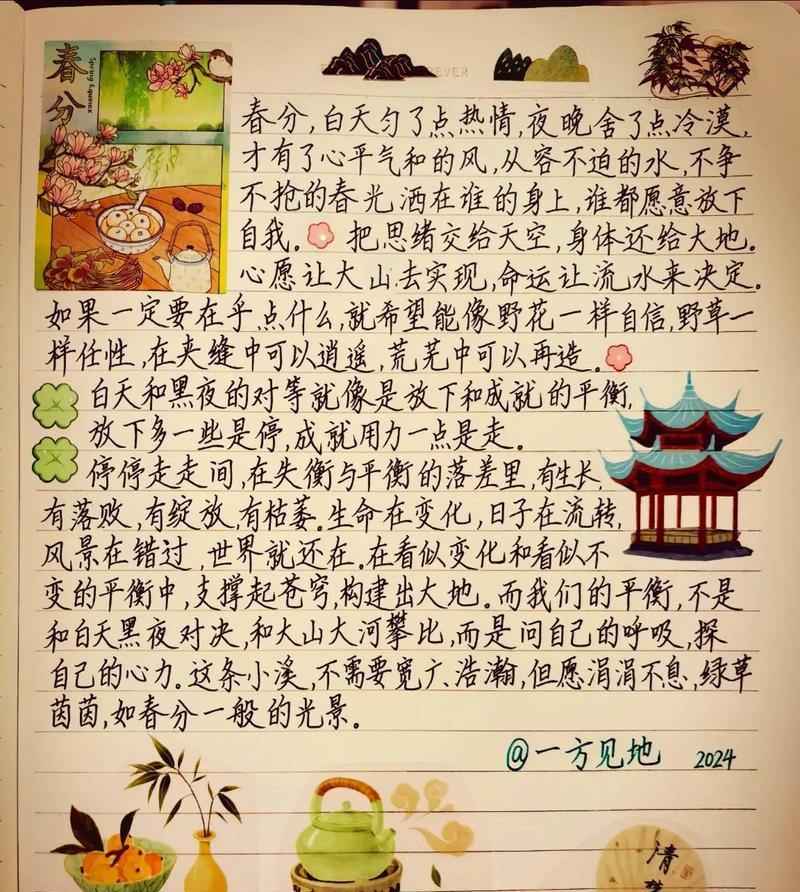 春分
Spring Equinox
EVER
春分,白天匀了点热情,夜晚舍了点冷漠,
才有了心平气和的风,从容不迫的水,不争
不抢的春光洒在谁的身上,谁都愿意放下
自我。把思绪交给天空,身体还给大地。
心愿让大山去实现,命运让流水来决定。
如果一定要在乎点什么,就希望能像野花一样自信,野草一
样任性,在夹缝中可以逍遥,荒芜中可以再造。
白天和黑夜的对等就像是放下和成就的平衡,
放下多一些是停,成就用力一点是走。
停停走走间,在失衡与平衡的落差里,有生长,
有落败,有绽放,有枯萎。生命在变化,日子在流转,
风景在错过,世界就还在。在看似变化和看似不
变的平衡中,支撑起苍穹,构建出大地。而我们的平衡,不是
和白天黑夜对决,和大山大河攀比,而是问自己的呼吸,探
自己的心力。这条小溪,不需要宽广、浩瀚,但愿涓涓不息,绿草
茵茵,如春分一般的光景。
@一方见地 2024
清